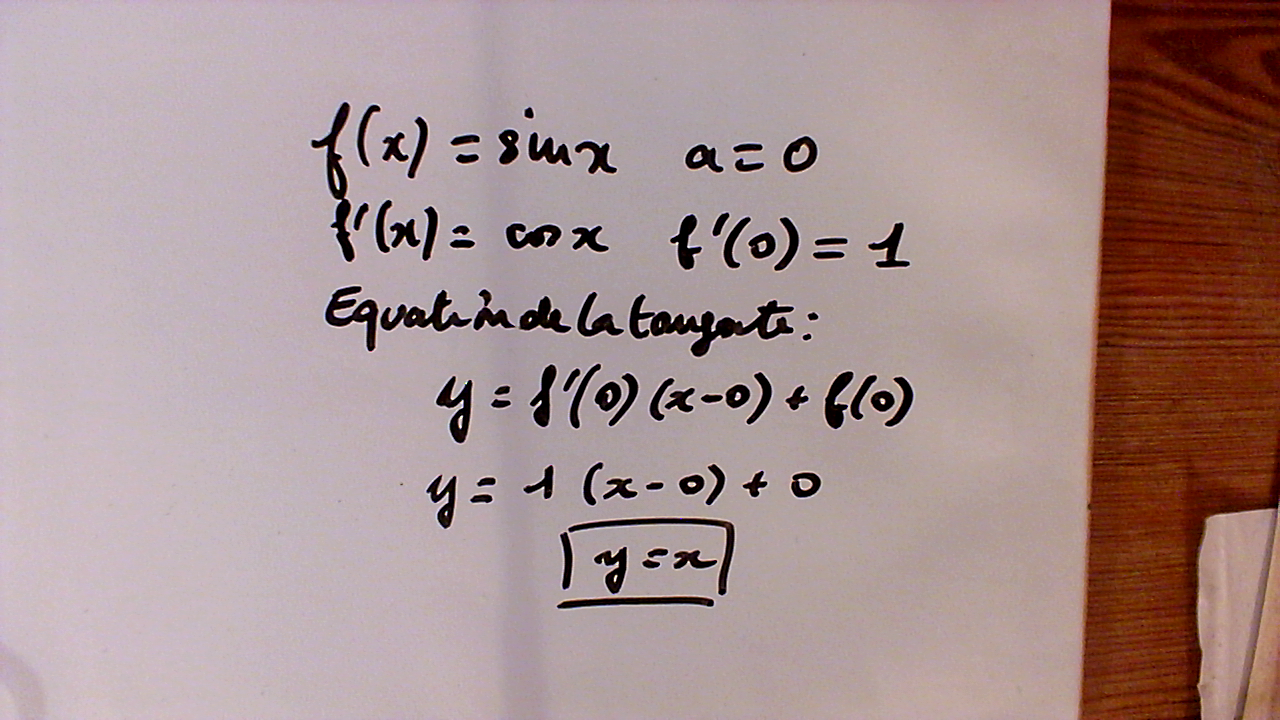 f(x) = sin x   a = 0
f'(x) = cos x   f'(0) = 1
Equation de la tangente :
y = f'(0) (x-0) + f(0)
y = 1 (x-0) + 0
y = x